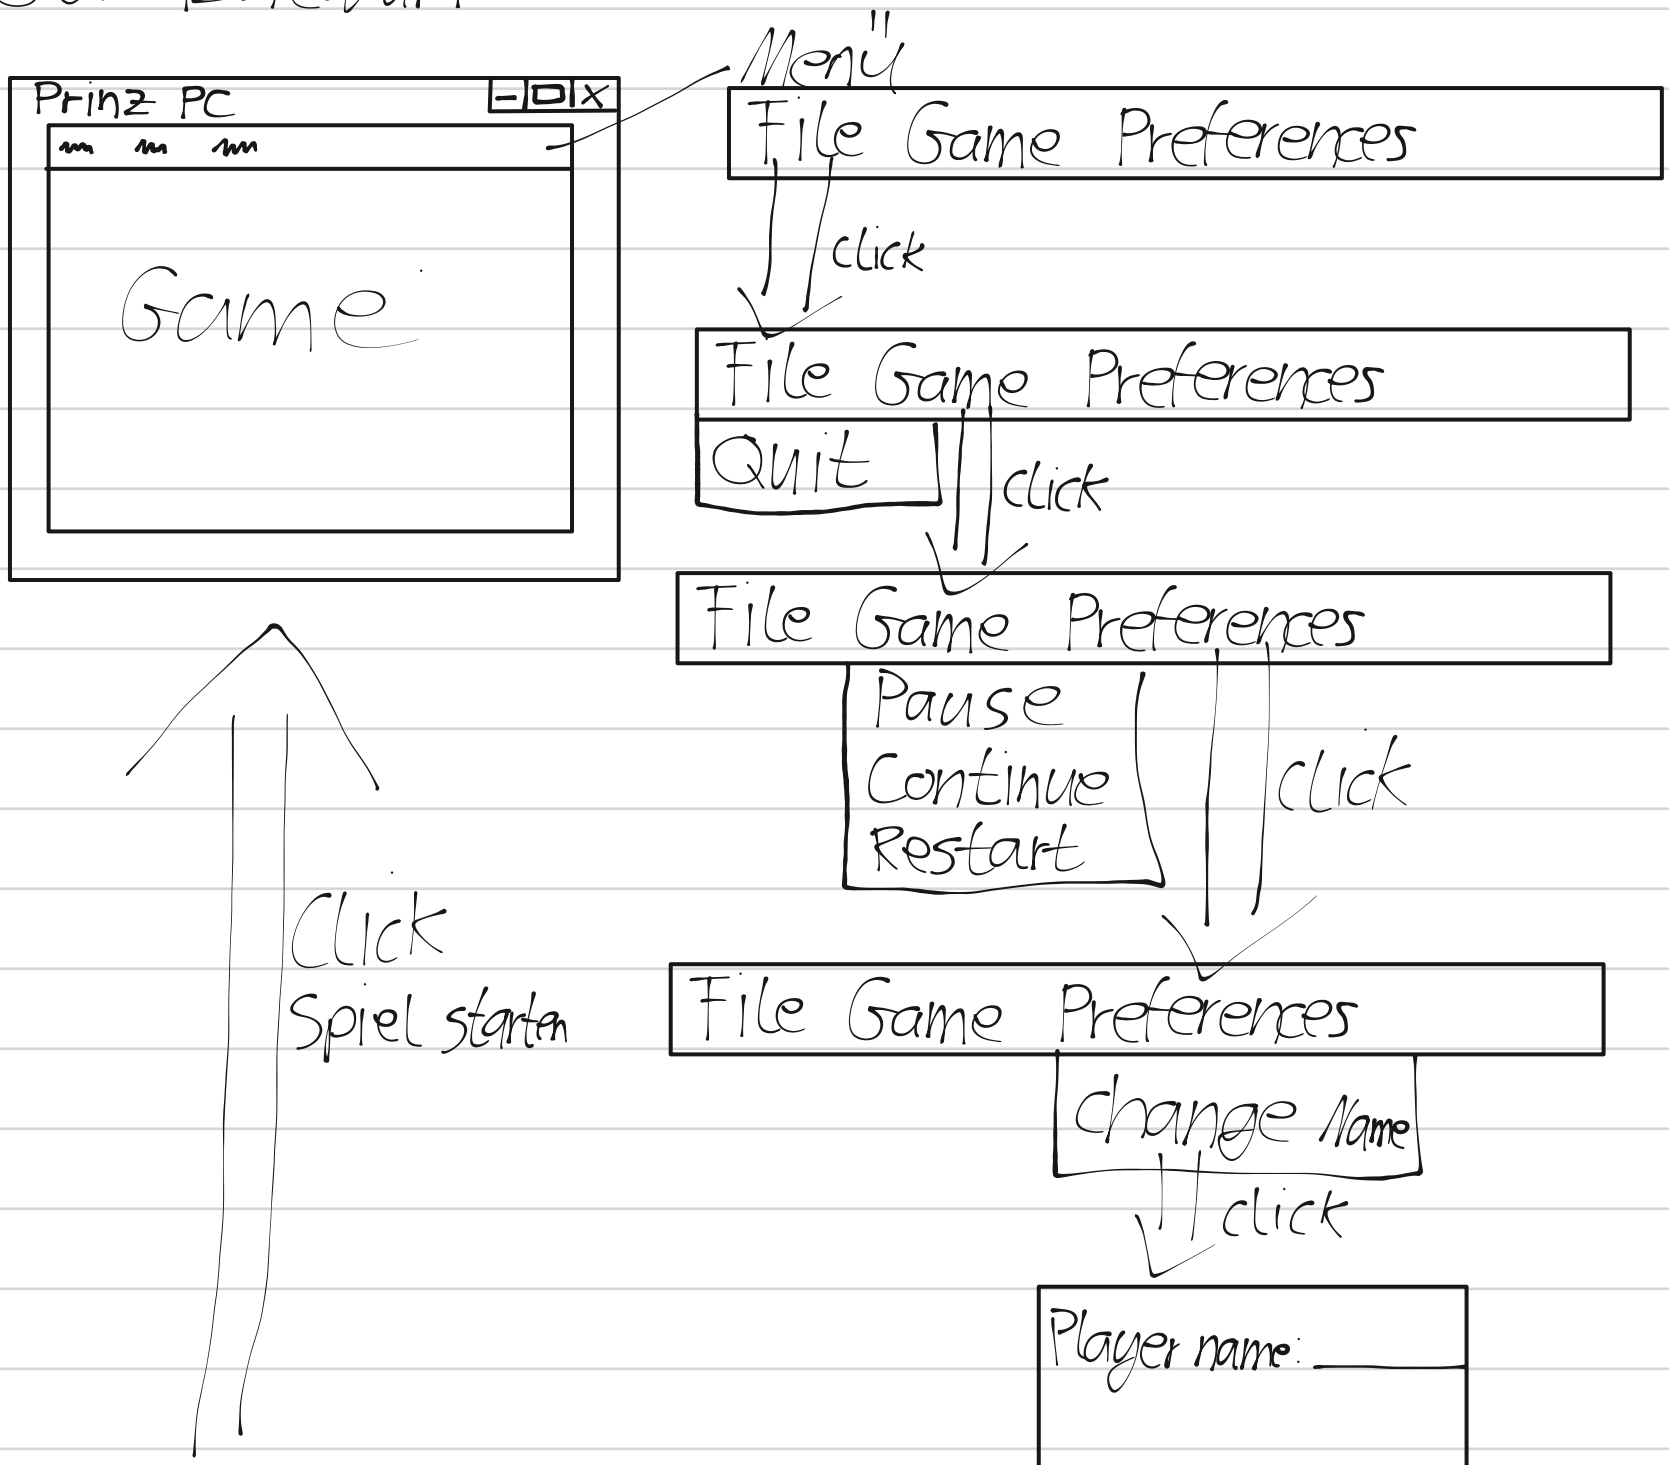 Prinz PC
Game
Menü
File Game Preferences
click
File Game Preferences
Quit
click
File Game Preferences
Pause
Continue
Restart
click
Click
Spiel starten
File Game Preferences
Change Name
click
Player name: